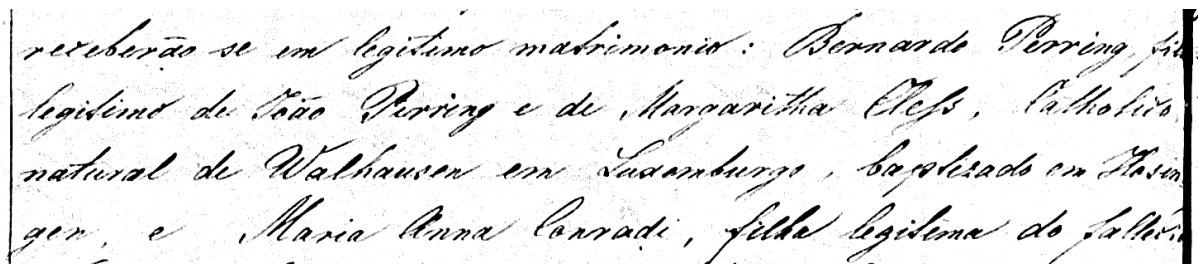 receberão se em legitimo matrimonio: Bernardo Perring, fil
legitimo de João Perring e de Margaritha Cless, Catholico,
natural de Walhausen em Luxemburgo, baptizado em Hosin
gen, e Maria Anna Conradi, filha legitima do falleci